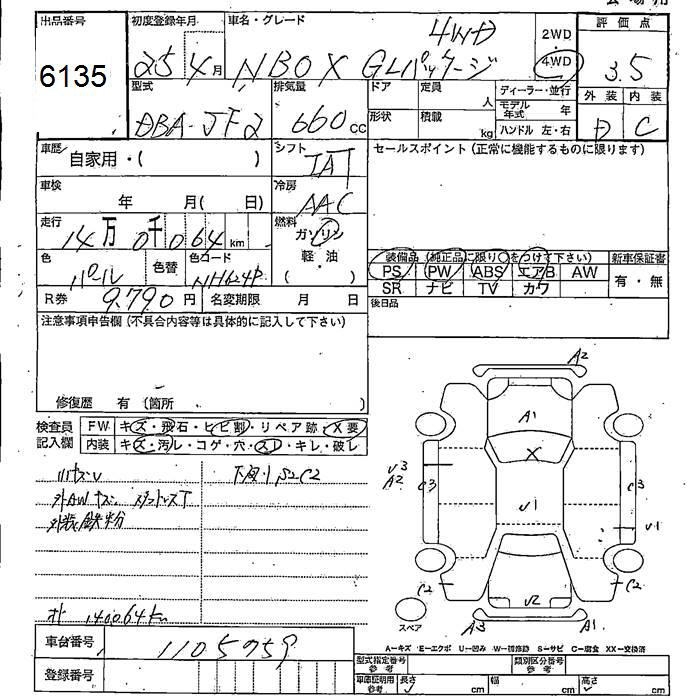 出品番号 初度登録年月 車名・グレード 2WD 評価点
6135 25年4月 N BOX GLパッケージ 4WD 4WD 3.5
型式 排気量 ドア 定員 人 ディーラー・並行 外装 内装
DBA-JF2 660cc 形状 積載 kg モデル年式 年 D C
ハンドル 左・右
車歴 自家用・( ) シフト IAT セールスポイント(正常に機能するものに限ります)
車検 年 月( 日) 冷房 AAC
走行 14万0千064km 燃料 ガソリン
軽・油
( )
色 パール 色替 色コード NH624P
装備品(純正品に限り○をつけて下さい) 新車保証書
PS PW ABS エアB AW 有・無
SR ナビ TV カワ
R券 9,790円 名変期限 月 日 後日品
注意事項申告欄(不具合内容等は具体的に記入して下さい)
修復歴 有(箇所 )
検査員記入欄 FW キズ・飛石・ヒビ割・リペア跡・X要
内装 キズ・汚レ・コゲ・穴・スレ・キレ・破レ
外AWキズ
外装鉄粉
140064km
A2
A1
X
U3
A2
C3
C3
U1
U1
C2
C2
U2
A3
A1
スペア
A-キズ E-エクボ U-凹み W-補修跡 S-サビ C-腐食 XX-交換済
車台番号 1105959
登録番号
型式指定番号参考 類別区分番号参考
車庫証明用参考 長さ cm 幅 cm 高さ cm